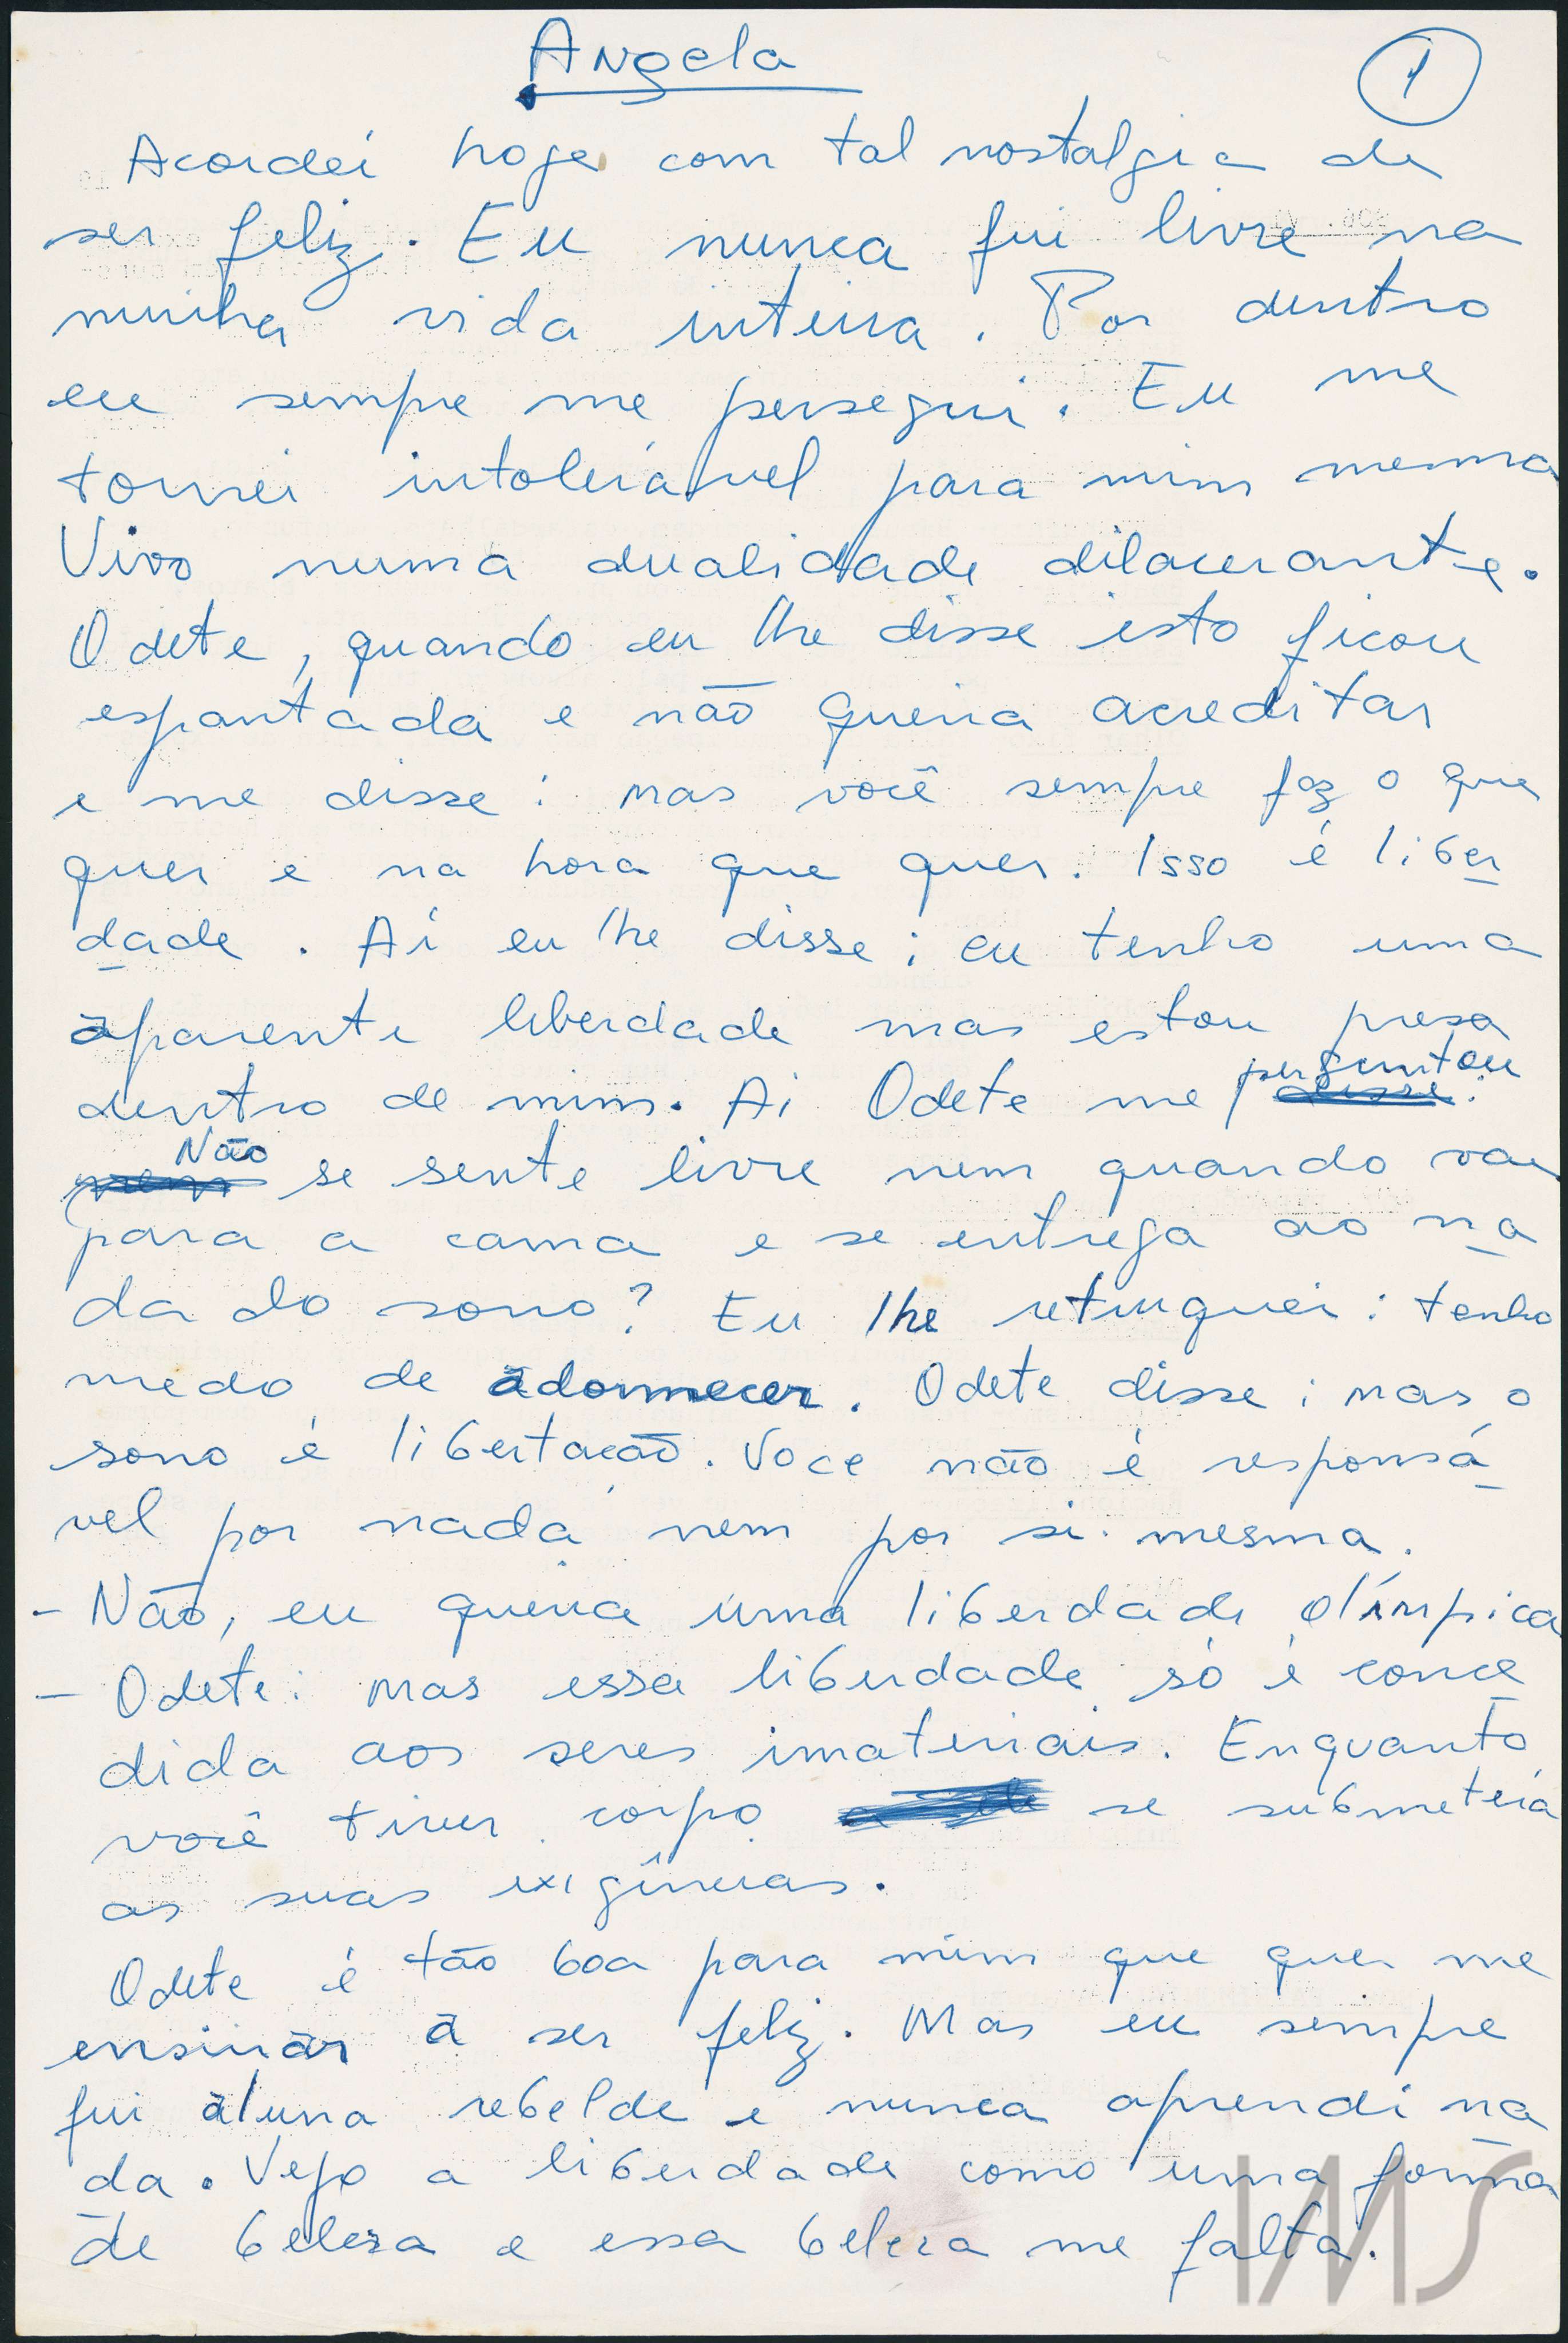 Angela
1
Acordei hoje com tal nostalgia de
ser feliz. Eu nunca fui livre na
minha vida inteira. Por dentro
eu sempre me persegui. Eu me
tornei intolerável para mim mesma
Vivo numa dualidade dilacerante.
Odete, quando eu lhe disse isto ficou
espantada e não queria acreditar
e me disse: mas você sempre faz o que
quer e na hora que quer. Isso é liber
dade. Aí eu lhe disse: eu tenho uma
aparente liberdade mas estou presa
perguntou
dentro de mim. Aí Odete me disse:
Não
nem se sente livre nem quando vai
para a cama e se entrega ao na
da do sono? Eu lhe retruquei: tenho
medo de adormecer. Odete disse: mas o
sono é libertação. Voce não é responsá
vel por nada nem por si mesma.
- Não, eu queria uma liberdade olímpica
- Odete: mas essa liberdade só é conce
dida aos seres imateriais. Enquanto
você tiver corpo se submeterá
as suas exigências.
Odete é tão boa para mim que quer me
ensinar a ser feliz. Mas eu sempre
fui aluna rebelde e nunca aprendi na
da. Vejo a liberdade como uma forma
de beleza e essa beleza me falta.
IMS